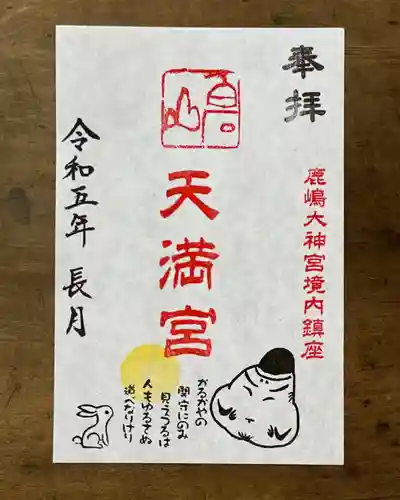 奉拝
鹿嶋大神宮境内鎮座
天満宮
かるかやの
関守にのみ
見えつるは
人もゆるさぬ
道べなりけり
令和五年 長月